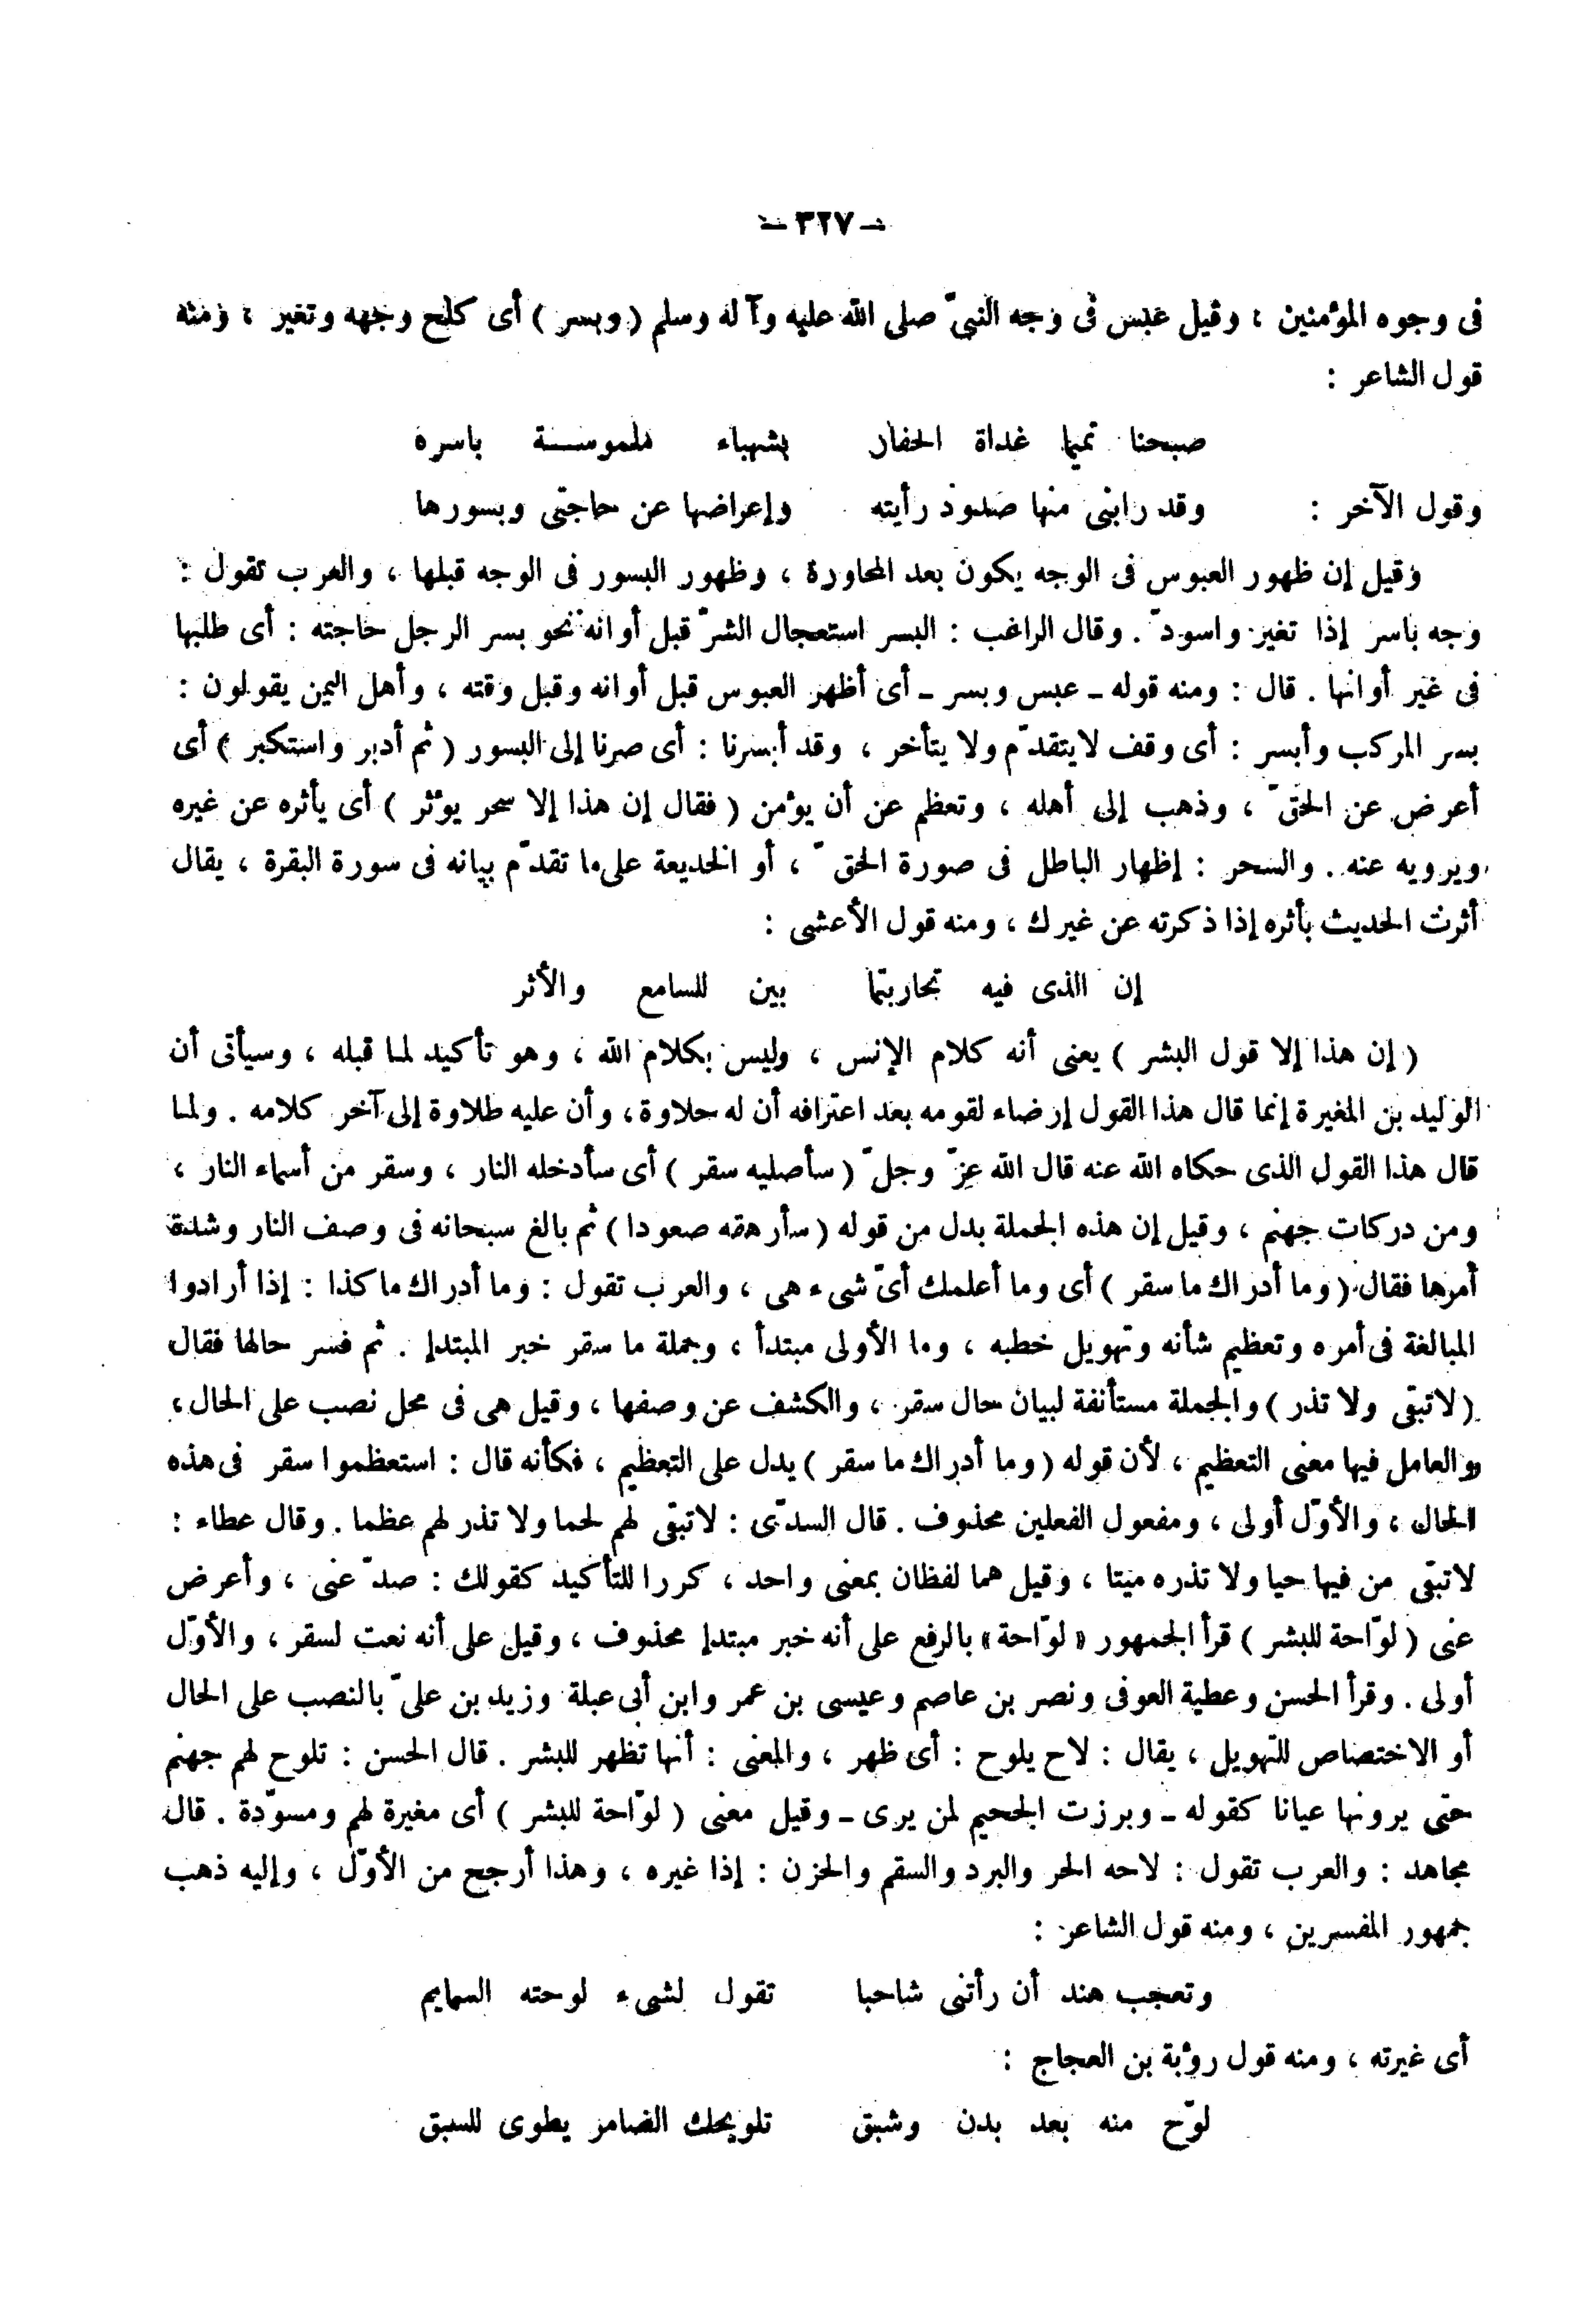 - ٣٢٧ -
فى وجوه المؤمنين ، وقيل عبس فى وجه النبىّ صلى الله عليه وآله وسلم ( وبسر ) أى كلح وجهه وتغير ، ومنه
قول الشاعر :
صبحنا تميما غداة الجفار بشهباء ملموسة باسره
وقول الآخر : وقد رابنى منها صدود رأيته وإعراضها عن حاجتى وبسورها
وقيل إن ظهور العبوس فى الوجه يكون بعد المحاورة ، وظهور البسور فى الوجه قبلها ، والعرب تقول :
وجه باسر إذا تغير واسودّ . وقال الراغب : البسر استعجال الشرّ قبل أوانه نحو بسر الرجل حاجته : أى طلبها
فى غير أوانها . قال : ومنه قوله ـ عبس وبسر ـ أى أظهر العبوس قبل أوانه وقبل وقته ، وأهل اليمن يقولون :
بسر المركب وأبسر : أى وقف لايتقدّم ولا يتأخر ، وقد أبسرنا : أى صرنا إلى البسور ( ثم أدبر واستكبر ) أى
أعرض عن الحقّ ، وذهب إلى أهله ، وتعظم عن أن يؤمن ( فقال إن هذا إلا سحر يؤثر ) أى يأثره عن غيره
ويرويه عنه . والسحر : إظهار الباطل فى صورة الحقّ ، أو الخديعة على ما تقدّم بيانه فى سورة البقرة ، يقال
أثرت الحديث بأثره إذا ذكرته عن غيرك ، ومنه قول الأعشى :
إن الذى فيه تحاربتما بين للسامع والأثر
( إن هذا إلا قول البشر ) يعنى أنه كلام الإنس ، وليس بكلام الله ، وهو تأكيد لما قبله ، وسيأتى أن
الوليد بن المغيرة إنما قال هذا القول إرضاء لقومه بعد اعترافه أن له حلاوة ، وأن عليه طلاوة إلى آخر كلامه . ولما
قال هذا القول الذى حكاه الله عنه قال الله عزّ وجلّ ( سأصليه سقر ) أى سأدخله النار ، وسقر من أسماء النار ،
ومن دركات جهنم ، وقيل إن هذه الجملة بدل من قوله ( سأرهقه صعودا ) ثم بالغ سبحانه فى وصف النار وشدة
أمرها فقال ( وما أدراك ما سقر ) أى وما أعلمك أىّ شىء هى ، والعرب تقول : وما أدراك ماكذا : إذا أرادوا
المبالغة فى أمره وتعظيم شأنه وتهويل خطبه ، وما الأولى مبتدأ ، وجملة ما سقر خبر المبتدإ . ثم فسر حالها فقال
( لاتبقى ولا تذر ) والجملة مستأنفة لبيان حال سقر ، والكشف عن وصفها ، وقيل هى فى محل نصب على الحال ،
والعامل فيها معنى التعظيم ، لأن قوله ( وما أدراك ما سقر ) يدل على التعظيم ، فكأنه قال : استعظموا سقر فى هذه
الحال ، والأوّل أولى ، ومفعول الفعلين محذوف . قال السدّى : لاتبقى لهم لحما ولا تذر لهم عظما . وقال عطاء :
لاتبقى من فيها حيا ولا تذره ميتا ، وقيل هما لفظان بمعنى واحد ، كررا للتأكيد كقولك : صدّ عنى ، وأعرض
عنى ( لوّاحة للبشر ) قرأ الجمهور « لوّاحة » بالرفع على أنه خبر مبتدإ محذوف ، وقيل على أنه نعت لسقر ، والأوّل
أولى . وقرأ الحسن وعطية العوفى ونصر بن عاصم وعيسى بن عمر وابن أبى عبلة وزيد بن علىّ بالنصب على الحال
أو الاختصاص للتهويل ، يقال : لاح يلوح : أى ظهر ، والمعنى : أنها تظهر للبشر . قال الحسن : تلوح لهم جهنم
حتى يرونها عيانا كقوله ـ وبرزت الجحيم لمن يرى ـ وقيل معنى ( لوّاحة للبشر ) أى مغيرة لهم ومسوّدة . قال
مجاهد : والعرب تقول : لاحه الحر والبرد والسقم والحزن : إذا غيره ، وهذا أرجح من الأوّل ، وإليه ذهب
جمهور المفسرين ، ومنه قول الشاعر :
وتعجب هند أن رأتنى شاحبا تقول لشىء لوحته السمايم
أى غيرته ، ومنه قول رؤبة بن العجاج :
لوّح منه بعد بدن وشبق تلويحك الضامر يطوى للسبق